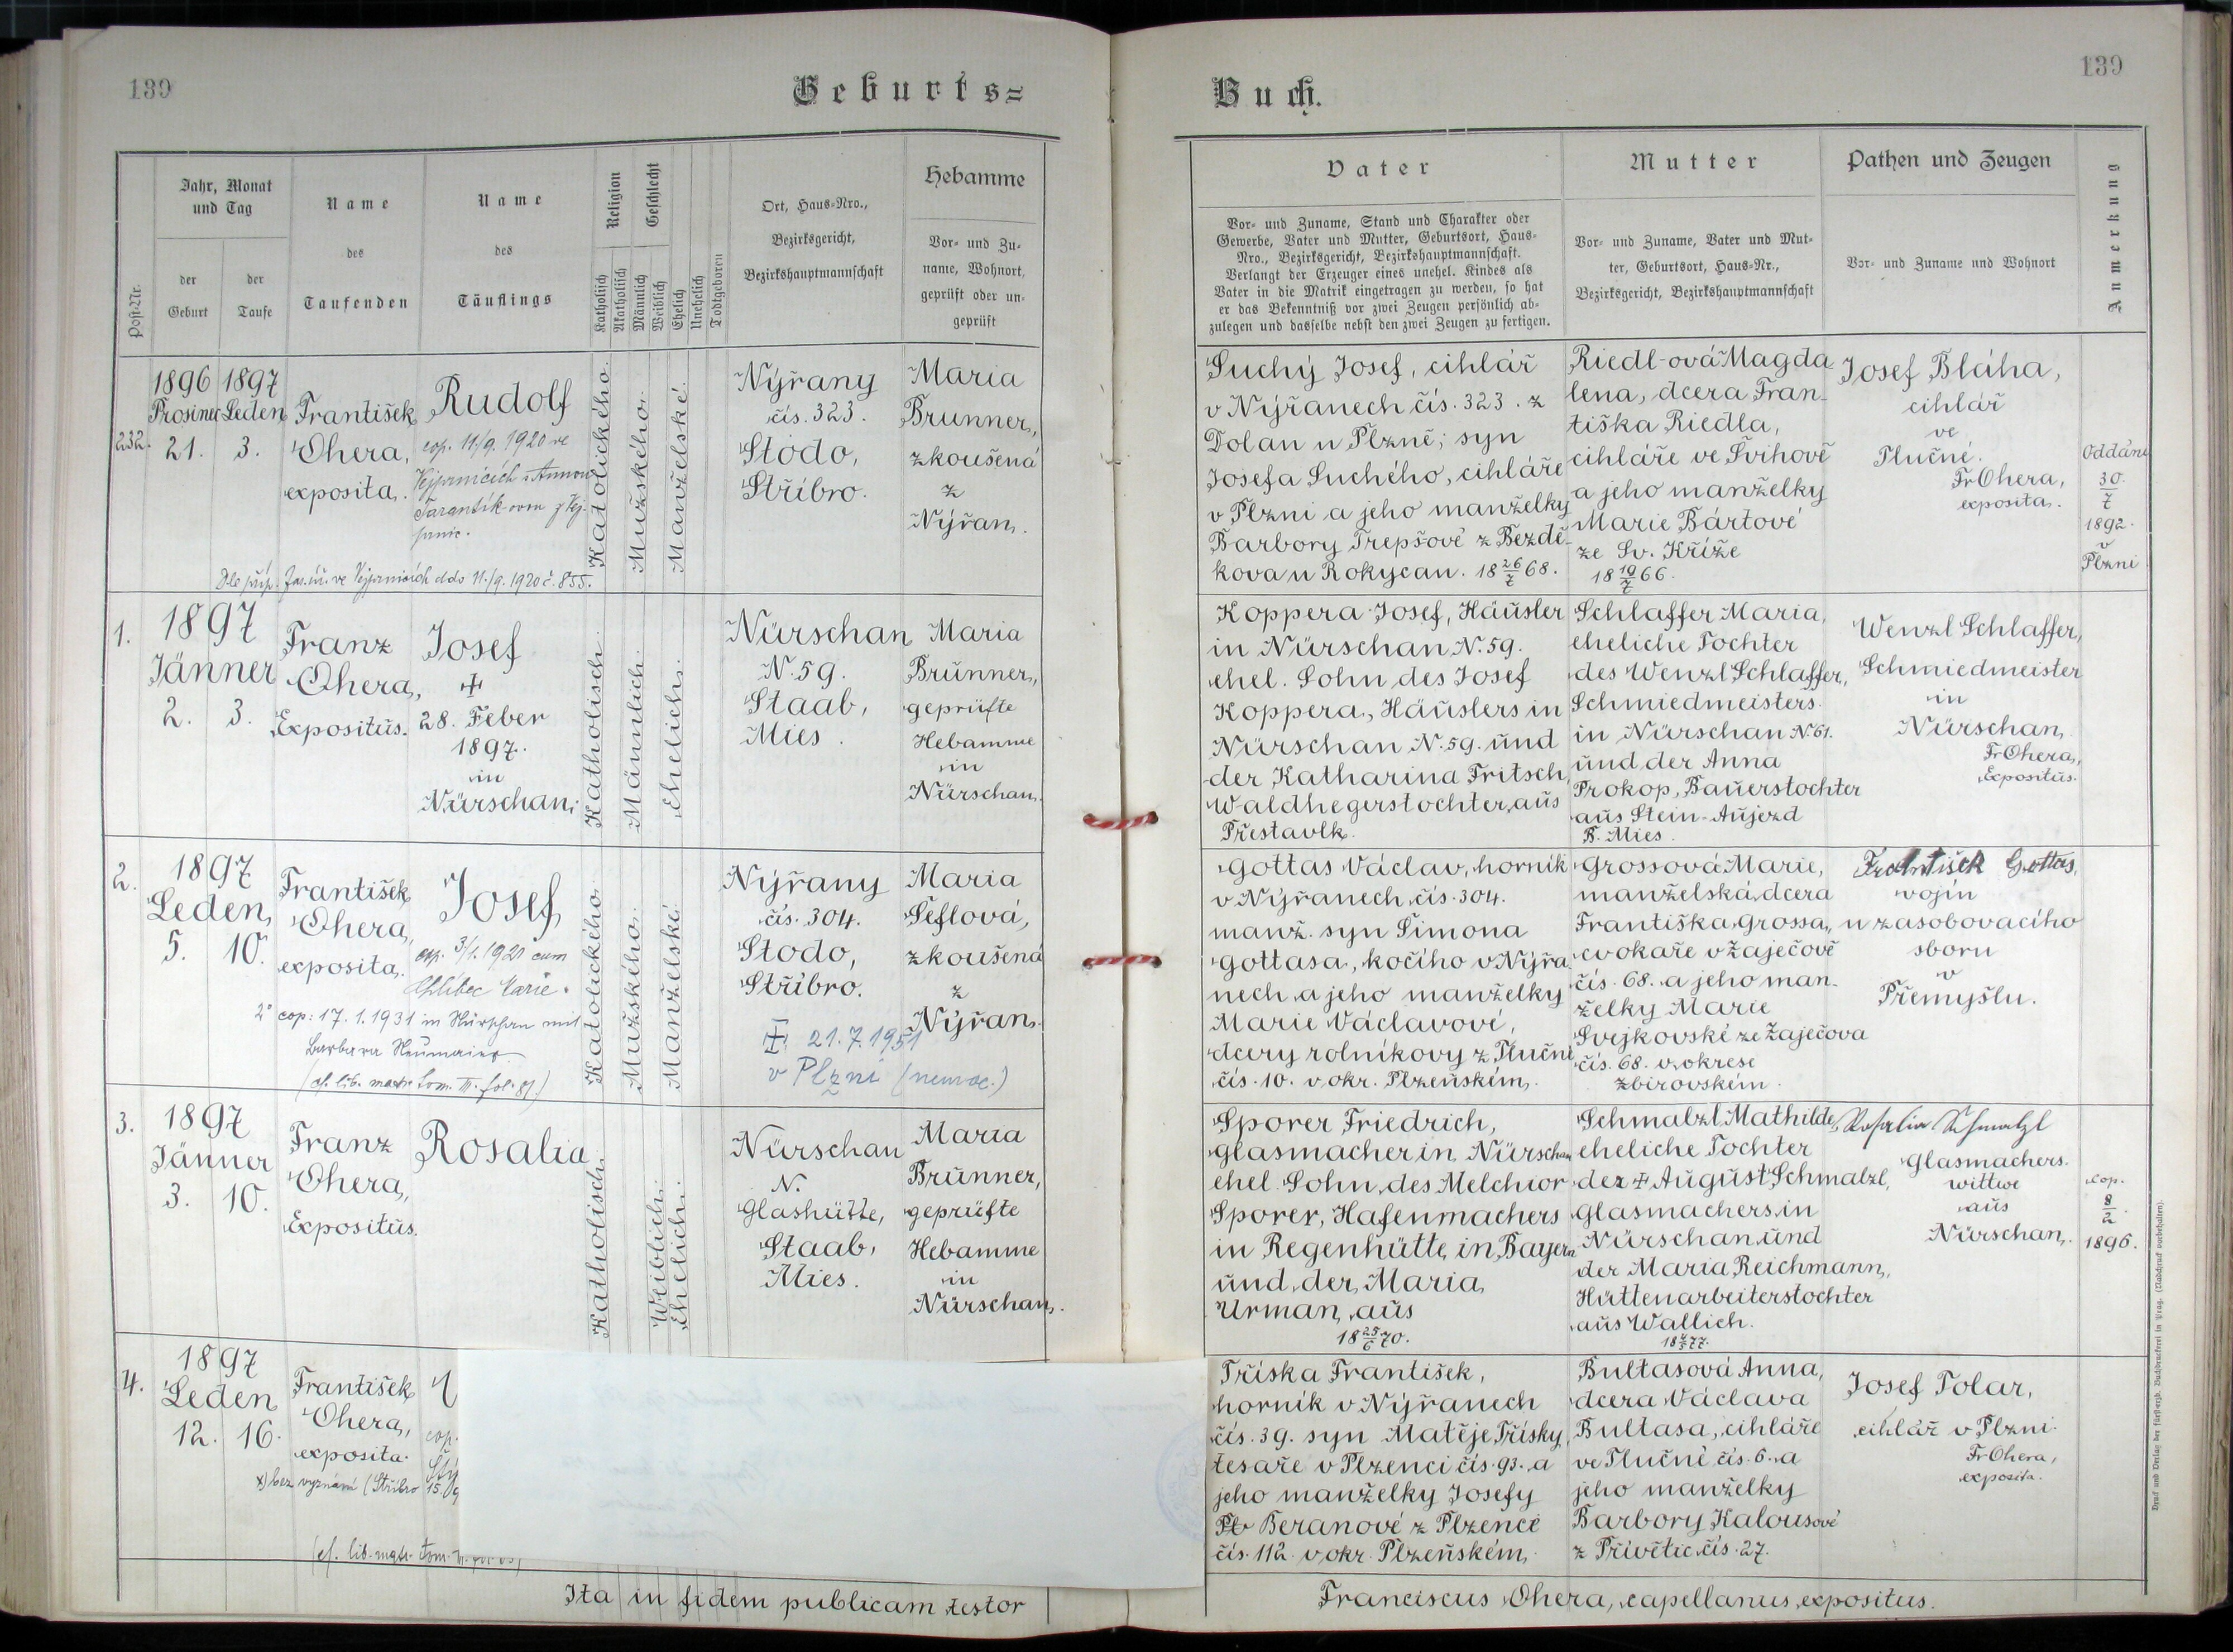 139
Geburts=
Post-Nr.
Jahr, Monat
und Tag
der
Geburt
der
Taufe
Name
des
Taufenden
Name
des
Täuflings
Religion
Katholisch
Akatholisch
Geschlecht
Männlich
Weiblich
Ehelich
Unehelich
Todtgeboren
Ort, Haus-Nro.,
Bezirksgericht,
Bezirkshauptmannschaft
Hebamme
Vor- und Zu-
name, Wohnort,
geprüft oder un-
geprüft
232.
1896
Prosinec
21.
1897
Leden
3.
František
Ohera,
exposita.
Rudolf
cop. 11./9. 1920 ve
Vejprnicích s Annou
Tarantík-ovou z Vej-
prnic.
ve Vejprnicích ddo 11./9. 1920 č. 855.
Katolického.
Mužského.
Manželské.
Nýřany
čís. 323.
Stodo,
Stříbro.
Maria
Brunner,
zkoušená
z
Nýřan.
1.
1897
Jänner
2.
3.
Franz
Ohera,
Expositus.
Josef
✠
28. Feber
1897.
in
Nürschan.
Katholisch.
Männlich.
Ehelich.
Nürschan
N. 59.
Staab,
Mies.
Maria
Brunner,
geprüfte
Hebamme
in
Nürschan.
2.
1897
Leden
5.
10.
František
Ohera,
exposita.
Josef
cop. 3/1. 1921 cum
Marie.
2° cop: 17. 1. 1931 in Nürschan mit
Barbara Neumaier
(cf. lib. matr. tom. III. fol. 81.)
Katolického.
Mužského.
Manželské.
Nýřany
čís. 304.
Stodo,
Stříbro.
Maria
Šeflová,
zkoušená
z
Nýřan.
✠ 21. 7. 1951
v Plzni (nemoc.)
3.
1897
Jänner
3.
10.
Franz
Ohera,
Expositus.
Rosalia
Katholisch.
Weiblich.
Ehelich.
Nürschan
N.
Glashütte,
Staab,
Mies.
Maria
Brunner,
geprüfte
Hebamme
in
Nürschan.
4.
1897
Leden
12.
16.
František
Ohera,
exposita.
cop.
x) bez vyznání (Stříbro 15.
(cf. lib. matr. tom.
Ita in fidem publicam testor
139
Buch.
Vater
Vor- und Zuname, Stand und Charakter oder
Gewerbe, Vater und Mutter, Geburtsort, Haus-
Nro., Bezirksgericht, Bezirkshauptmannschaft.
Verlangt der Erzeuger eines unehel. Kindes als
Vater in die Matrik eingetragen zu werden, so hat
er das Bekenntniß vor zwei Zeugen persönlich ab-
zulegen und dasselbe nebst den zwei Zeugen zu fertigen.
Mutter
Vor- und Zuname, Vater und Mut-
ter, Geburtsort, Haus-Nr.,
Bezirksgericht, Bezirkshauptmannschaft
Pathen und Zeugen
Vor- und Zuname und Wohnort
Anmerkung
Suchý Josef, cihlář
v Nýřanech čís. 323. z
Dolan u Plzně; syn
Josefa Suchého, cihláře
v Plzni a jeho manželky
Barbory Trepšové z Bezdě-
kova u Rokycan. 18 26/7 68.
Riedl-ová Magda
lena, dcera Fran-
tiška Riedla,
cihláře ve Švihově
a jeho manželky
Marie Bártové
ze Sv. Kříže
18 19/7 66.
Josef Bláha,
cihlář
ve
Plučné.
Fr Ohera,
exposita.
Oddáni
30.
7
1892.
v
Plzni
Koppera Josef, Häusler
in Nürschan N. 59.
ehel. Sohn des Josef
Koppera, Häuslers in
Nürschan N. 59. und
der Katharina Fritsch,
Waldhegerstochter aus
Přestavlk.
Schlaffer Maria,
eheliche Tochter
des Wenzl Schlaffer,
Schmiedmeisters
in Nürschan N. 61.
und der Anna
Prokop, Bauerstochter
aus Stein-Aujezd
B. Mies.
Wenzl Schlaffer,
Schmiedmeister
in
Nürschan.
Fr Ohera,
Expositus.
Gottas Václav, horník
v Nýřanech čís. 304.
manž. syn Šimona
Gottasa, kočího v Nýřa
nech a jeho manželky
Marie Václavové,
dcery rolníkovy z Plučné
čís. 10. v okr. Plzeňském.
Grossová Marie,
manželská dcera
Františka Grossa,
cvokaře v Zaječově
čís. 68. a jeho man-
želky Marie
Svejkovské ze Zaječova
čís. 68. v okrese
zbirovském.
František Gottas,
vojín
u zasobovacího
sboru
v
Přemyšlu.
Sporer Friedrich,
Glasmacher in Nürschan
ehel. Sohn des Melchior
Sporer, Hafenmachers
in Regenhütte in Bayern
und der Maria
Urman aus
18 25/6 70.
Schmalzl Mathilde,
eheliche Tochter
der ✠ August Schmalzl,
Glasmachers in
Nürschan und
der Maria Reichmann,
Hüttenarbeiterstochter
aus Wallich.
Rosalia Schmalzl
Glasmachers-
wittwe
aus
Nürschan.
cop.
8
2
1896.
Tříska František,
horník v Nýřanech
čís. 39. syn Matěje Třísky,
tesaře v Plzenci čís. 93. a
jeho manželky Josefy
Beranové z Plzence
čís. 112. v okr. Plzeňském.
Bultasová Anna,
dcera Václava
Bultasa, cihláře
ve Plučné čís. 6. a
jeho manželky
Barbory Kalousové
z Přívětic čís. 27.
Josef Tolar,
cihlář v Plzni.
Fr Ohera,
exposita.
Franciscus Ohera, capellanus expositus.
Druck und Verlag der fürsterzb. Buchdruckerei in Prag. (Nachdruck vorbehalten).